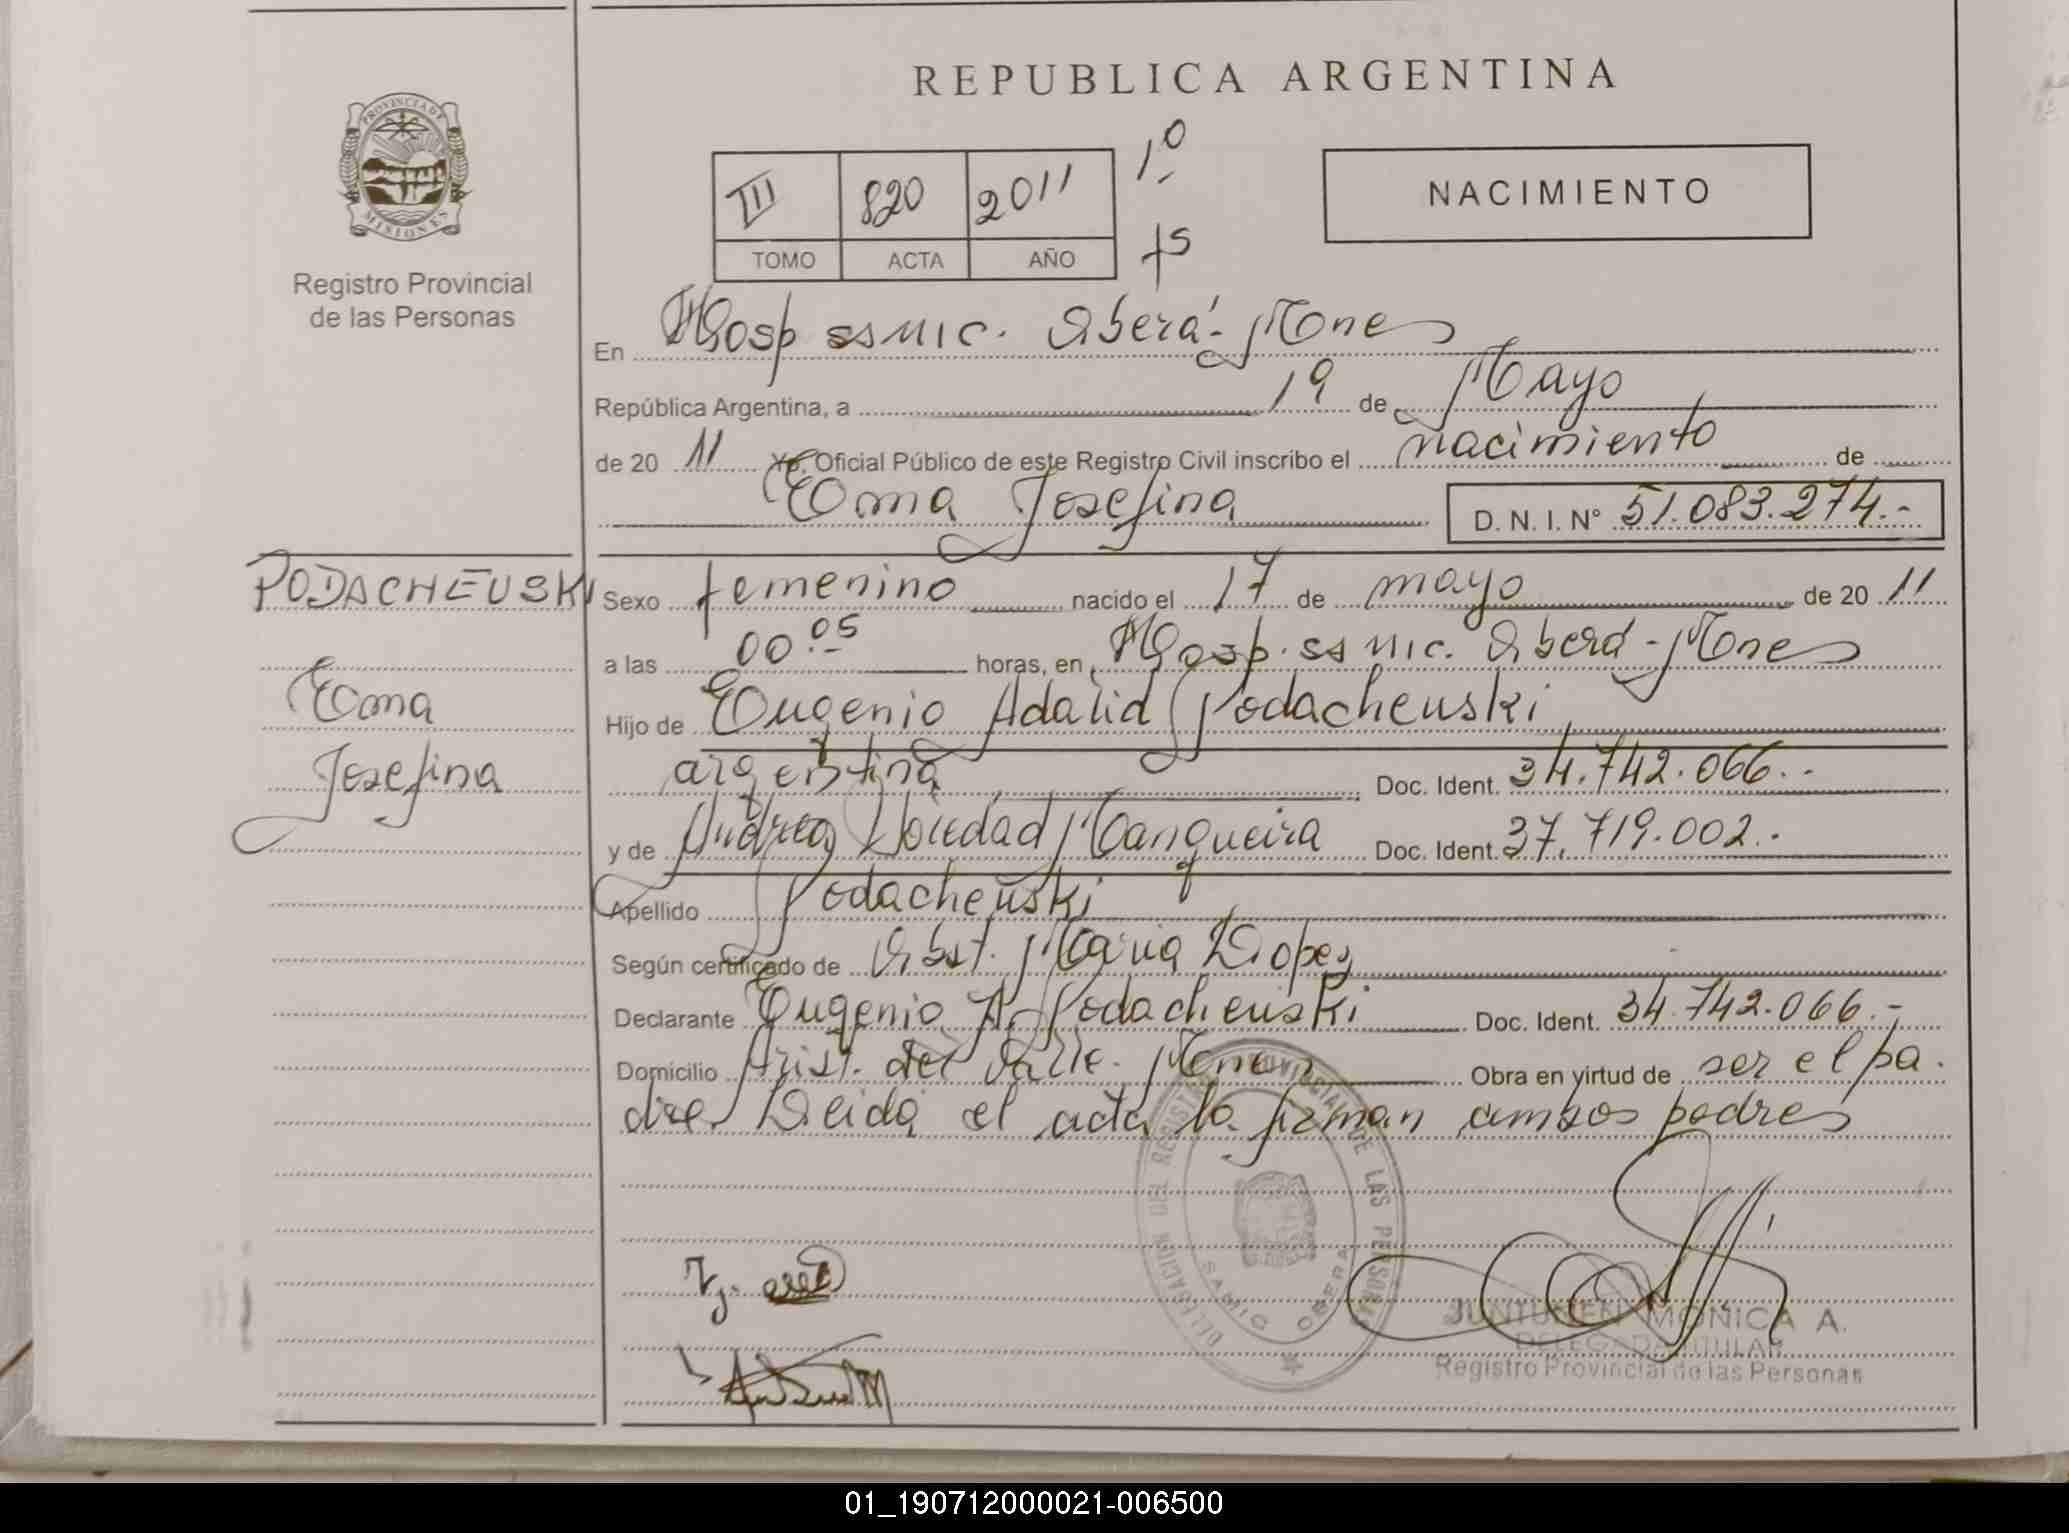 REPUBLICA ARGENTINA
PROVINCIA DE
MISIONES
Registro Provincial
de las Personas
III 820 2011 1º
TOMO ACTA AÑO
NACIMIENTO
En Hosp ss Mic. Oberá - Mnes
República Argentina, a 19 de Mayo
de 20 11 Yo, Oficial Público de este Registro Civil inscribo el nacimiento de
Ema Josefina D. N. I. Nº 51.083.274.-
PODACHEUSKI
Ema
Josefina
Sexo femenino nacido el 17 de mayo de 20 11
a las 00.05 horas, en Hosp. ss Mic. Oberá - Mnes
Hijo de Eugenio Adalid Podacheuski
argentina Doc. Ident. 34.742.066.-
y de Andrea Soledad Manqueira Doc. Ident. 37.719.002.-
Apellido Podacheuski
Según certificado de Obst. Maria Lopez
Declarante Eugenio A. Podacheuski Doc. Ident. 34.742.066.-
Domicilio Arist. del Valle. Mnes Obra en virtud de ser el pa.
dre Leida el acta la firman ambos padres
DELEGACION DEL REGISTRO PROVINCIAL DE LAS PERSONAS
OBERA
JUNTUNEN MONICA A.
DELEGADA TITULAR
Registro Provincial de las Personas
01_190712000021-006500